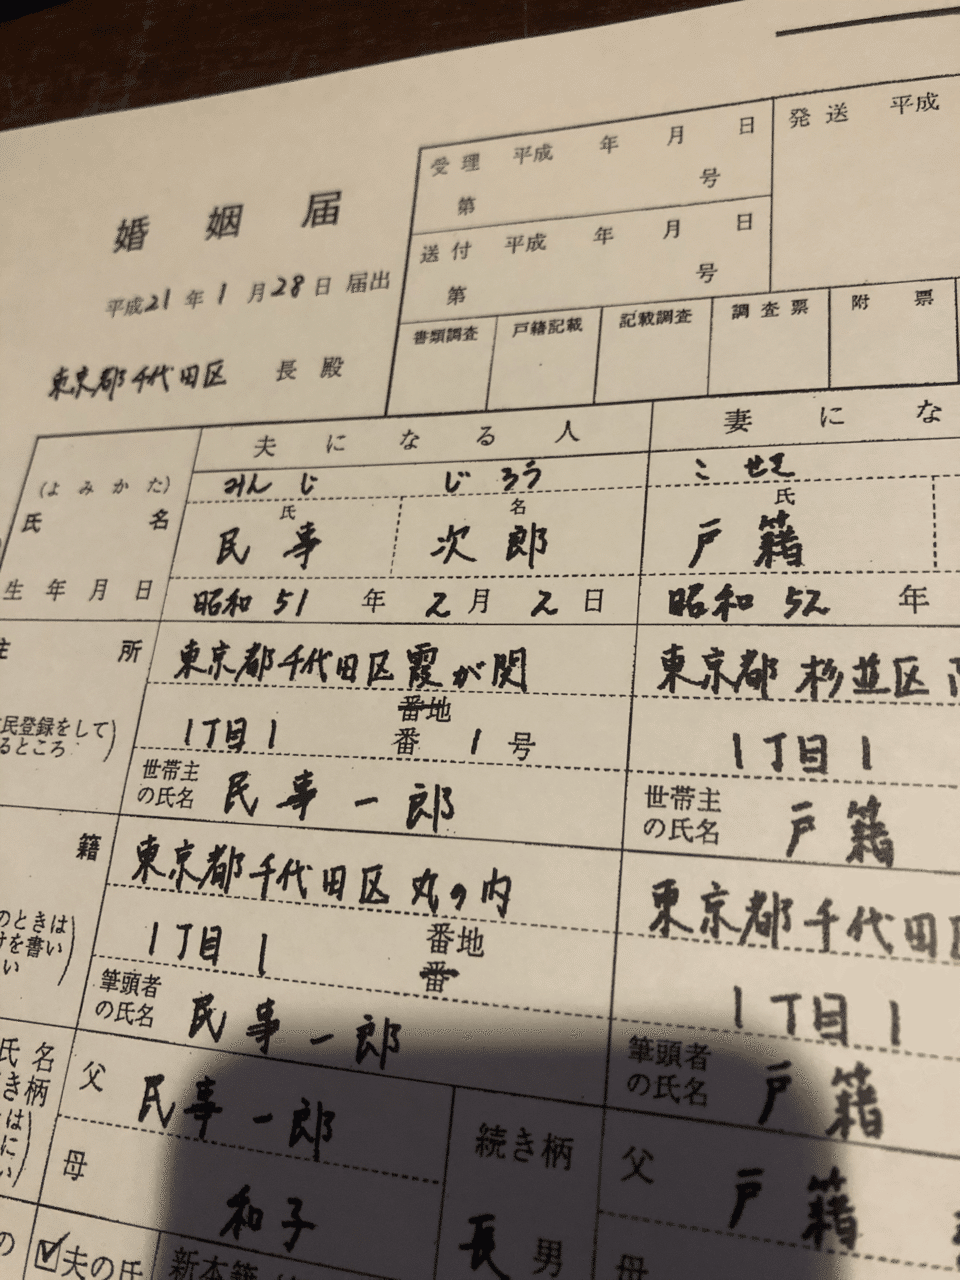 発送 平成
受理 平成 年 月 日
第 号
送付 平成 年 月 日
第 号
書類調査 戸籍記載 記載調査 調査票 附票
婚姻届
平成21年1月28日届出
東京都千代田区 長殿
夫になる人 妻にな
(よみかた) みんじ じろう こせき
氏名 氏 民事 名 次郎 氏 戸籍
生年月日 昭和51年2月2日 昭和52年
住所 東京都千代田区霞が関 東京都杉並区
民登録をして
るところ)
1丁目1 番地 番 1号 1丁目1
世帯主の氏名 民事一郎 世帯主の氏名 戸籍
籍 東京都千代田区丸の内 東京都千代田
のときは
けを書い
い)
1丁目1 番地 番 1丁目1
筆頭者の氏名 民事一郎 筆頭者の氏名 戸籍
氏名
き柄
父 民事一郎 続き柄 父 戸籍
母 和子 長男 母
の ☑夫の氏 新本籍